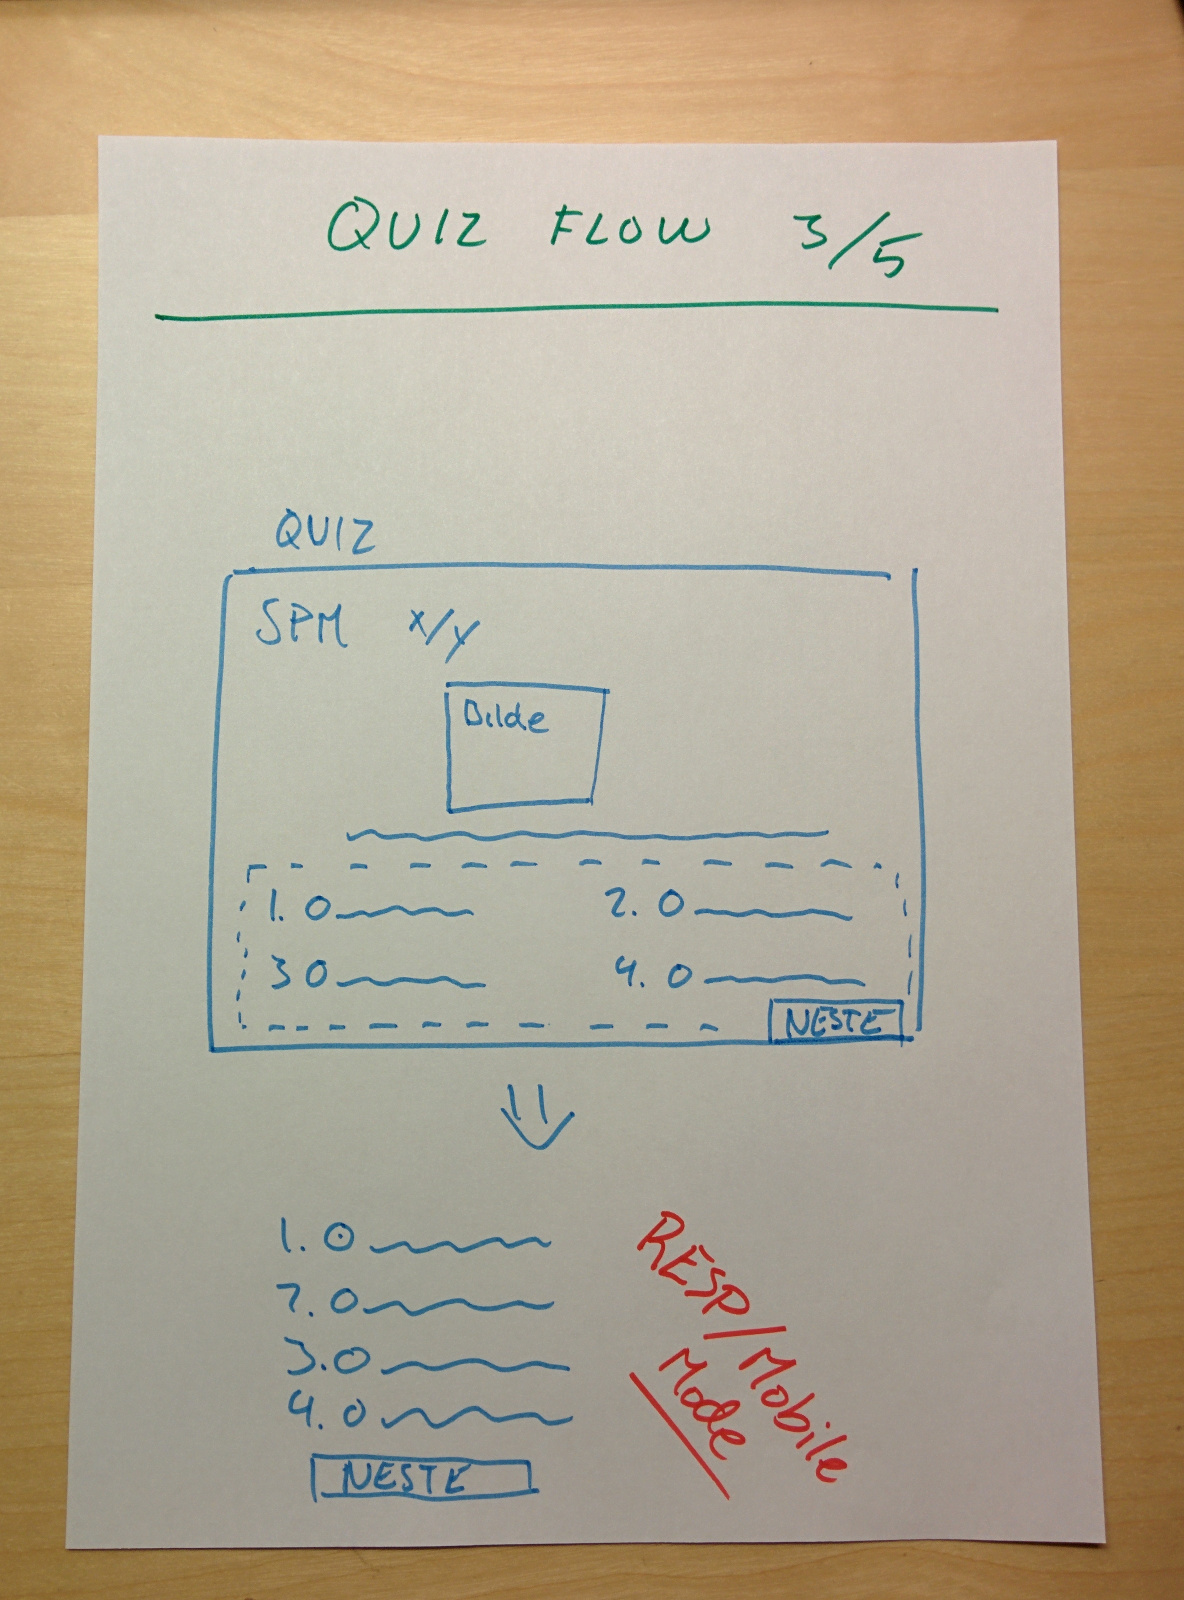 QUIZ FLOW 3/5
QUIZ
SPM x/y
Bilde
1. O
2. O
3 O
4. O
NESTE
1. O
2. O
3. O
4. O
NESTE
RESP/Mobile
Mode